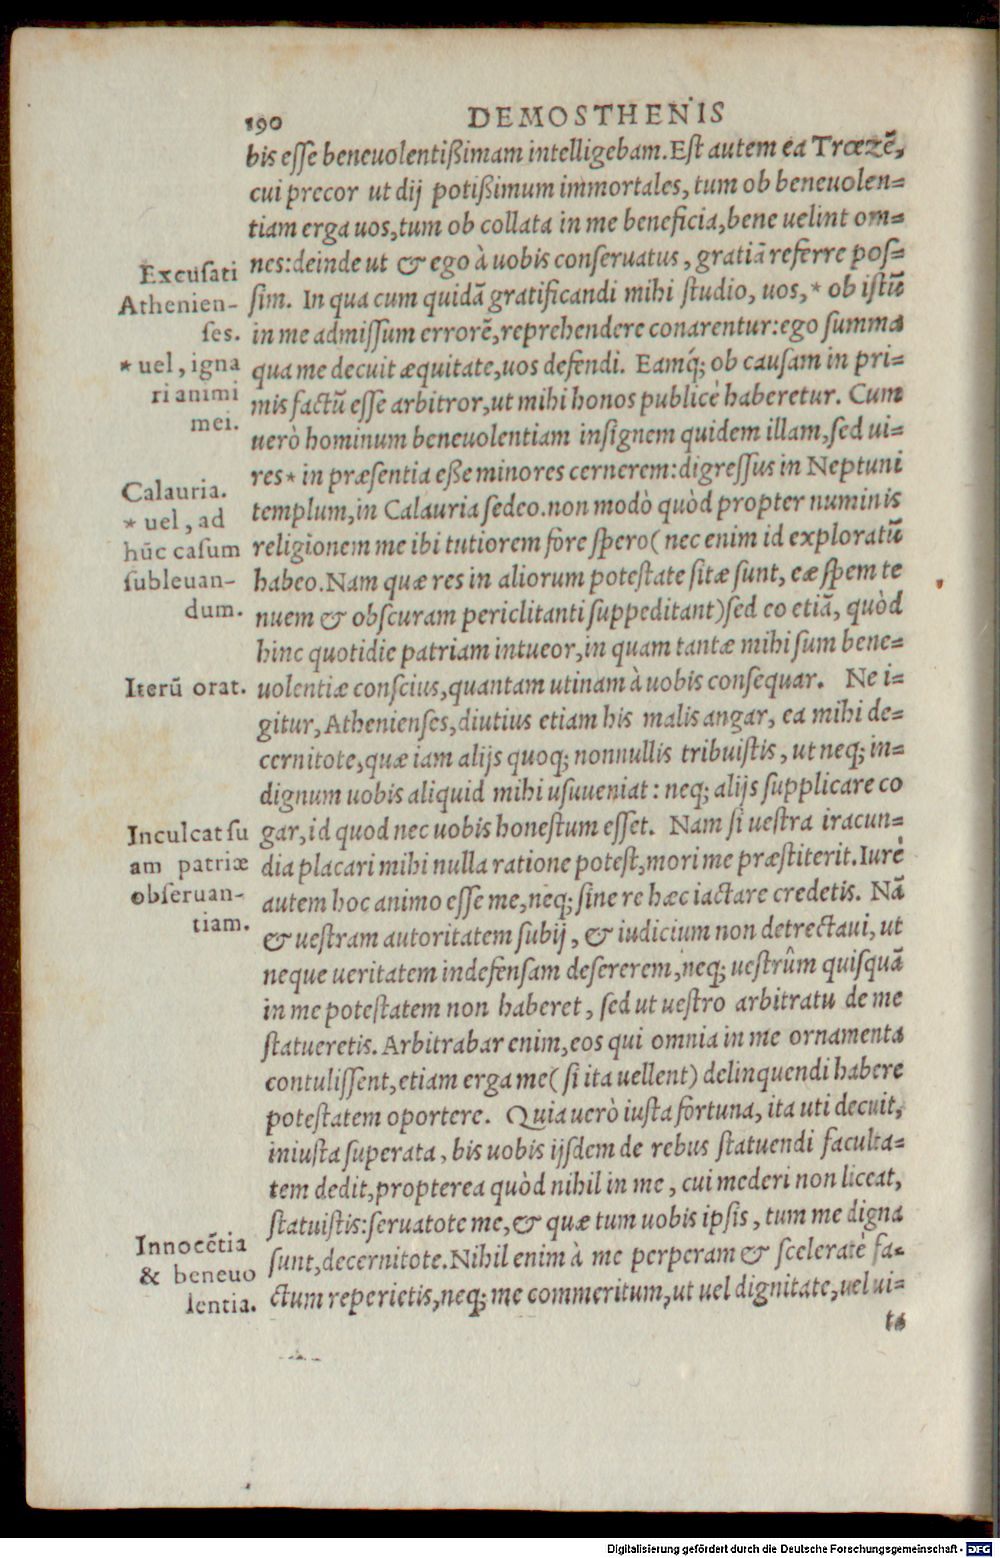 190 DEMOSTHENIS
bis eſſe beneuolentißimam intelligebam. Eſt autem ea Trœzẽ,
cui precor ut dij potißimum immortales, tum ob beneuolen=
tiam erga uos, tum ob collata in me beneficia, bene uelint om=
nes: deinde ut & ego à uobis conſeruatus, gratiã referre poſ=
ſim. In qua cum quidã gratificandi mihi ſtudio, uos, * ob iſtũ
in me admiſſum errorẽ, reprehendere conarentur: ego ſumma
qua me decuit æquitate, uos defendi. Eamq́; ob cauſam in pri=
mis factũ eſſe arbitror, ut mihi honos publicè haberetur. Cum
uerò hominum beneuolentiam inſignem quidem illam, ſed ui=
res * in præſentia eße minores cernerem: digreſſus in Neptuni
templum, in Calauria ſedeo. non modò quòd propter numinis
religionem me ibi tutiorem fore ſpero (nec enim id exploratũ
habeo. Nam quæ res in aliorum poteſtate ſitæ ſunt, eæ ſpem te
nuem & obſcuram periclitanti ſuppeditant) ſed eo etiã, quòd
hinc quotidie patriam intueor, in quam tantæ mihi ſum bene=
uolentiæ conſcius, quantam utinam à uobis conſequar. Ne i=
gitur, Athenienſes, diutius etiam his malis angar, ea mihi de=
cernitote, quæ iam alijs quoq; nonnullis tribuiſtis, ut neq; in=
dignum uobis aliquid mihi uſuueniat: neq; alijs ſupplicare co
gar, id quod nec uobis honeſtum eſſet. Nam ſi ueſtra iracun=
dia placari mihi nulla ratione poteſt, mori me præſtiterit. Iurè
autem hoc animo eſſe me, neq; ſine re hæc iactare credetis. Nã
& ueſtram autoritatem ſubij, & iudicium non detrectaui, ut
neque ueritatem indefenſam deſererem, neq; ueſtrûm quiſquã
in me poteſtatem non haberet, ſed ut ueſtro arbitratu de me
ſtatueretis. Arbitrabar enim, eos qui omnia in me ornamenta
contuliſſent, etiam erga me (ſi ita uellent) delinquendi habere
poteſtatem oportere. Quia uerò iuſta fortuna, ita uti decuit,
iniuſta ſuperata, bis uobis ijſdem de rebus ſtatuendi faculta=
tem dedit, propterea quòd nihil in me, cui mederi non liceat,
ſtatuiſtis: ſeruatote me, & quæ tum uobis ipſis, tum me digna
ſunt, decernitote. Nihil enim à me perperam & ſceleratè fa=
ctum reperietis, neq; me commeritum, ut uel dignitate, uel ui=
ta
Excuſati
Athenien-
ſes.
* uel, igna
ri animi
mei.
Calauria.
* uel, ad
hũc caſum
ſubleuan-
dum.
Iterũ orat.
Inculcat ſu
am patriæ
obſeruan-
tiam.
Innocẽtia
& beneuo
lentia.
Digitalisierung gefördert durch die Deutsche Forschungsgemeinschaft - DFG